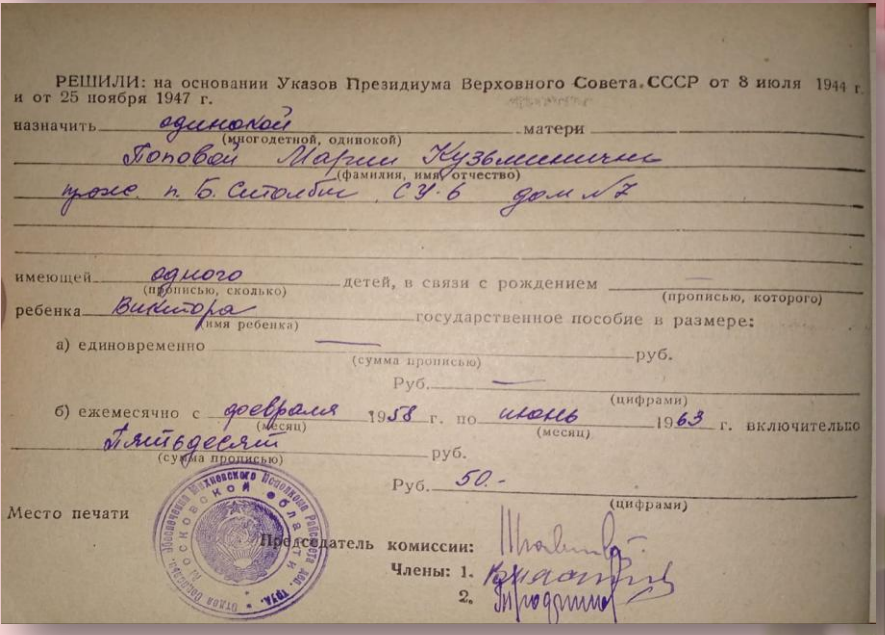 РЕШИЛИ: на основании Указов Президиума Верховного Совета СССР от 8 июля 1944 г.
и от 25 ноября 1947 г.
назначить одинокой матери
(многодетной, одинокой)
Поповой Марии Кузьминичне
(фамилия, имя, отчество)
прож. п. Б. Столбы СУ-6 дом №7
имеющей одного детей, в связи с рождением —
(прописью, сколько) (прописью, которого)
ребенка Виктора государственное пособие в размере:
(имя ребенка)
а) единовременно — руб.
(сумма прописью)
Руб. —
(цифрами)
б) ежемесячно с февраля 1958 г. по июнь 1963 г. включительно
(месяц) (месяц)
Пятьдесят руб.
(сумма прописью)
Руб. 50.-
(цифрами)
Место печати
Московской области
Председатель комиссии:
Члены: 1.
2.